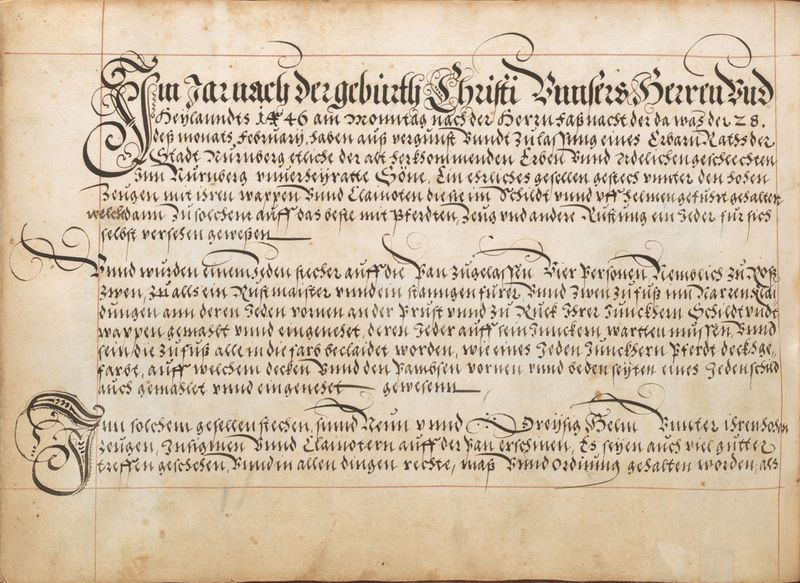 Im Jar nach der gebürth Christi Vnnsers Herren Vnd
Heylanndts 1446 am Monntag nach der Herrn faßnacht der da was der 28.
deß monats February, haben auß vergunst Vnndt Zulassung eines Erbarn Raths der
Stadt Nürnberg etliche der alt herkhommenden Erben Vnnd Adelichen geschlechten
Inn Nürnberg vnuerheyratte Söne, Ein ehrliches gesellen gestech vnnter den hohen
Zeugen mit ihren wappen Vnnd Clainoten die sie im Schildt vnnd vff Helmen gefuhrt gehalten
welche dann Zu solchem auff das beste mit Pferdten, Zeug vnd andere Rüstung ein Jeder für sich
selbst versehen geweßen
Vnnd wurden einem Jeden stecher auff die Pan Zugelassen Vier Personen Nemblich Zu Roß
Zwen, Zu alls ein Rüstmaister vnnd ein stanngen fürer Vnnd Zwen Zu fuß inn Narren Klai
dungen ann deren Jeden vornen an der Prust vnnd Zu Ruck Ihrer Junckhern Schildt vndt
wappen gemahlt vnnd eingenehet, deren Jeder auff sein Junckern wartten müssen, Vnnd
sein die Zu fuß alle in die farb beclaidet worden, wie eines Jeden Junckhern Pferdt deckh ge,
farbt, auff welchem decken Vnnd den Paubsen vornen vnnd beden seyten eines Jeden schild
auch gemahlet vnnd eingenehet gewesenn
Inn solchem gesellen stechen, sinnd Neun vnnd Dreyssig Helm Vnnter ihren hohen
Zeugen, Zusigmen Vnnd Clainotern auff der Pan erschinen, Es seyen auch viel gutter
treffen geschehen, Vnnd in allen dingen rechte, maß Vnnd ordnung gehalten worden, als